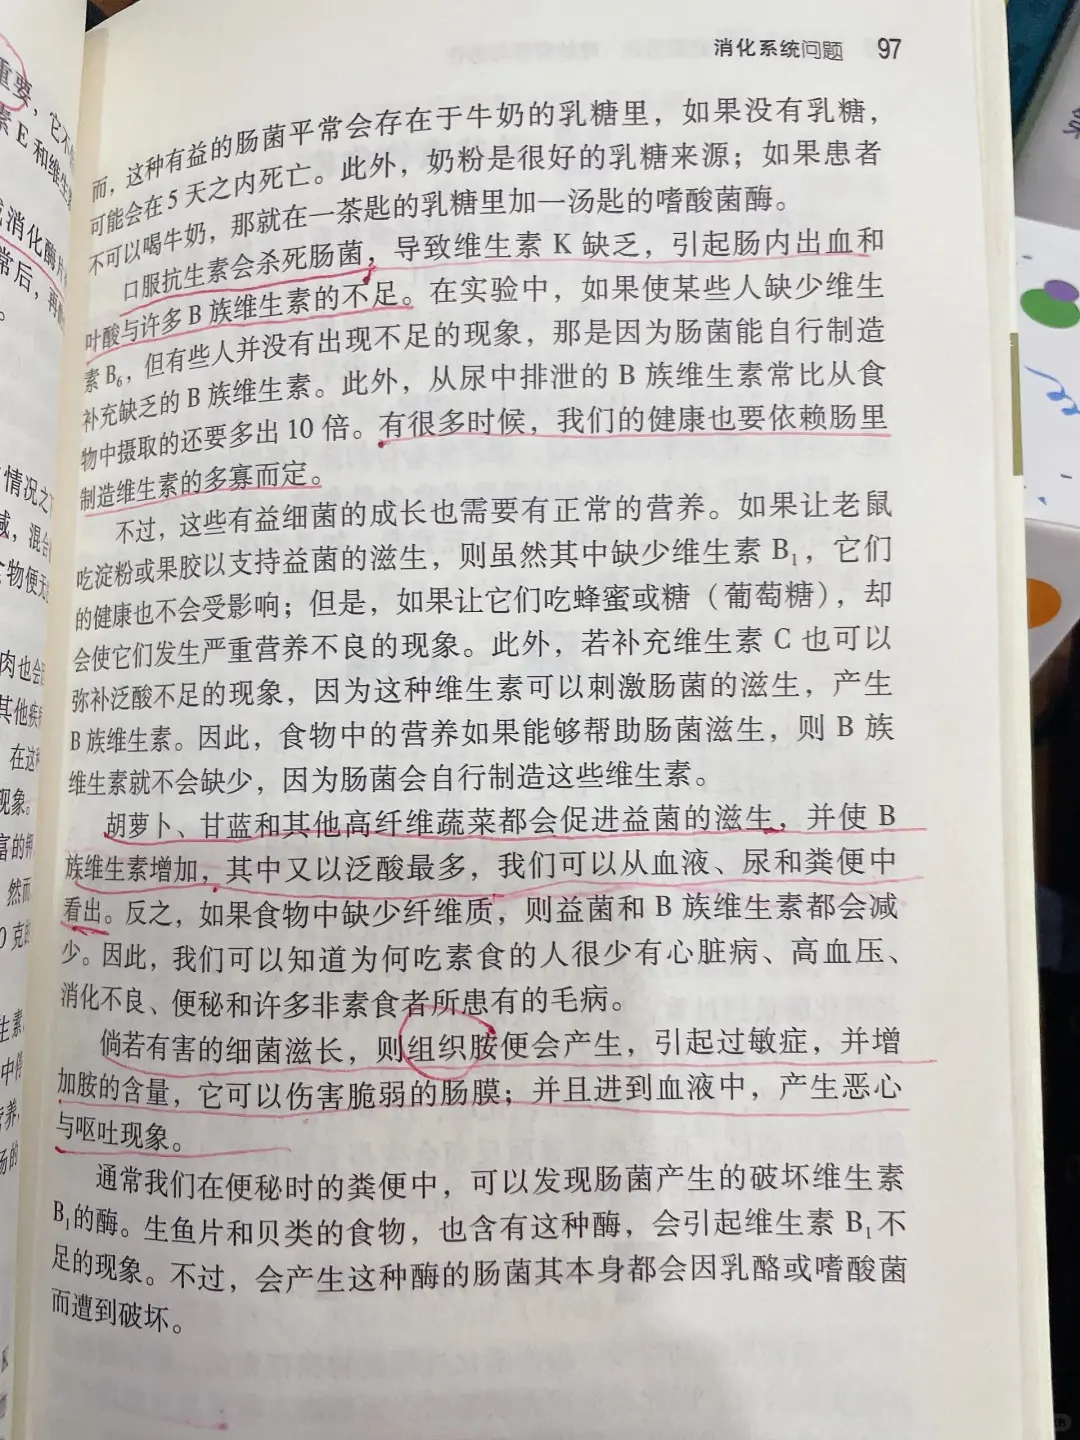 消化系统问题 97
而，这种有益的肠菌平常会存在于牛奶的乳糖里，如果没有乳糖，
可能会在5天之内死亡。此外，奶粉是很好的乳糖来源；如果患者
不可以喝牛奶，那就在一茶匙的乳糖里加一汤匙的嗜酸菌酶。
口服抗生素会杀死肠菌，导致维生素 K 缺乏，引起肠内出血和
叶酸与许多 B 族维生素的不足。在实验中，如果使某些人缺少维生
素 B₆，但有些人并没有出现不足的现象，那是因为肠菌能自行制造
补充缺乏的 B 族维生素。此外，从尿中排泄的 B 族维生素常比从食
物中摄取的还要多出 10 倍。有很多时候，我们的健康也要依赖肠里
制造维生素的多寡而定。
不过，这些有益细菌的成长也需要有正常的营养。如果让老鼠
吃淀粉或果胶以支持益菌的滋生，则虽然其中缺少维生素 B₁，它们
的健康也不会受影响；但是，如果让它们吃蜂蜜或糖（葡萄糖），却
会使它们发生严重营养不良的现象。此外，若补充维生素 C 也可以
弥补泛酸不足的现象，因为这种维生素可以刺激肠菌的滋生，产生
B 族维生素。因此，食物中的营养如果能够帮助肠菌滋生，则 B 族
维生素就不会缺少，因为肠菌会自行制造这些维生素。
胡萝卜、甘蓝和其他高纤维蔬菜都会促进益菌的滋生，并使 B
族维生素增加，其中又以泛酸最多，我们可以从血液、尿和粪便中
看出。反之，如果食物中缺少纤维质，则益菌和 B 族维生素都会减
少。因此，我们可以知道为何吃素食的人很少有心脏病、高血压、
消化不良、便秘和许多非素食者所患有的毛病。
倘若有害的细菌滋长，则组织胺便会产生，引起过敏症，并增
加胺的含量，它可以伤害脆弱的肠膜；并且进到血液中，产生恶心
与呕吐现象。
通常我们在便秘时的粪便中，可以发现肠菌产生的破坏维生素
B₁的酶。生鱼片和贝类的食物，也含有这种酶，会引起维生素 B₁不
足的现象。不过，会产生这种酶的肠菌其本身都会因乳酪或嗜酸菌
而遭到破坏。